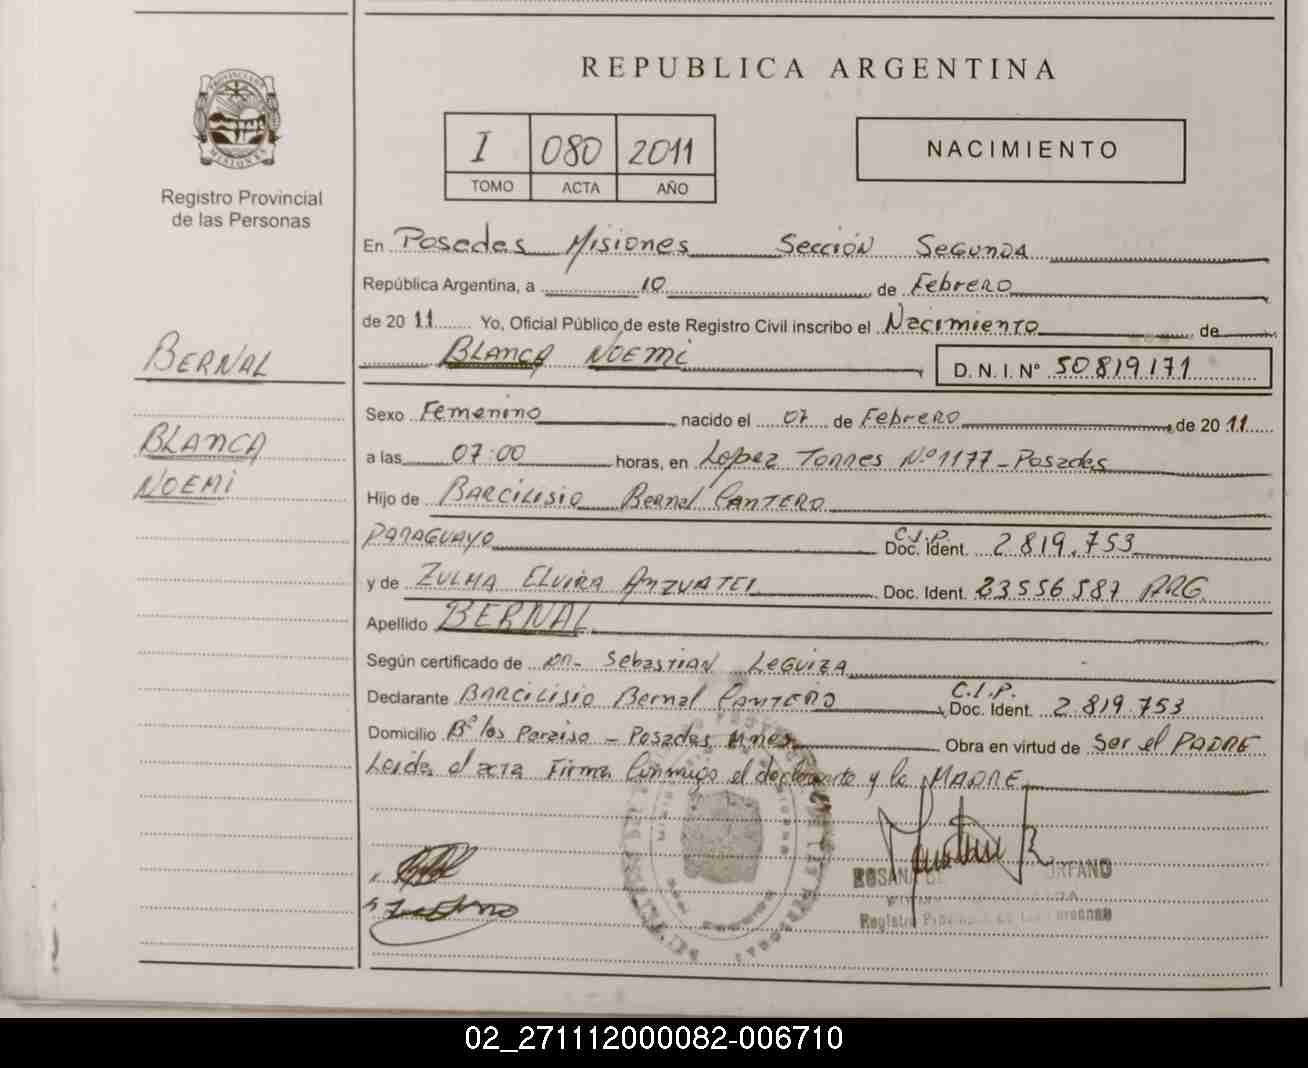 REPUBLICA ARGENTINA
PROVINCIA DE MISIONES
Registro Provincial
de las Personas
I 080 2011
TOMO ACTA AÑO
NACIMIENTO
En Posadas Misiones Sección Segunda
República Argentina, a 10 de Febrero
de 2011 Yo, Oficial Público de este Registro Civil inscribo el Nacimiento de
BLANCA NOEMI D. N. I. Nº 50819171
BERNAL
BLANCA
NOEMI
Sexo Femenino nacido el 07 de Febrero de 2011
a las 07:00 horas, en Lopez Torres Nº 1177 - Posadas
Hijo de BARCILISIO Bernal CANTERO
PARAGUAYO C.I.P. Doc. Ident. 2.819.753
y de ZULMA ELVIRA ANZUATEI Doc. Ident. 23556587 ARG.
Apellido BERNAL
Según certificado de Dr. Sebastian Leguiza
Declarante BARCILISIO Bernal CANTERO C.I.P. Doc. Ident. 2.819.753
Domicilio Bº los Paraiso - Posadas Mnes Obra en virtud de Ser el PADRE
Leida el acta Firma Conmigo el declarante y la MADRE
ROSANA
Registro Provincial de las Personas
02_271112000082-006710